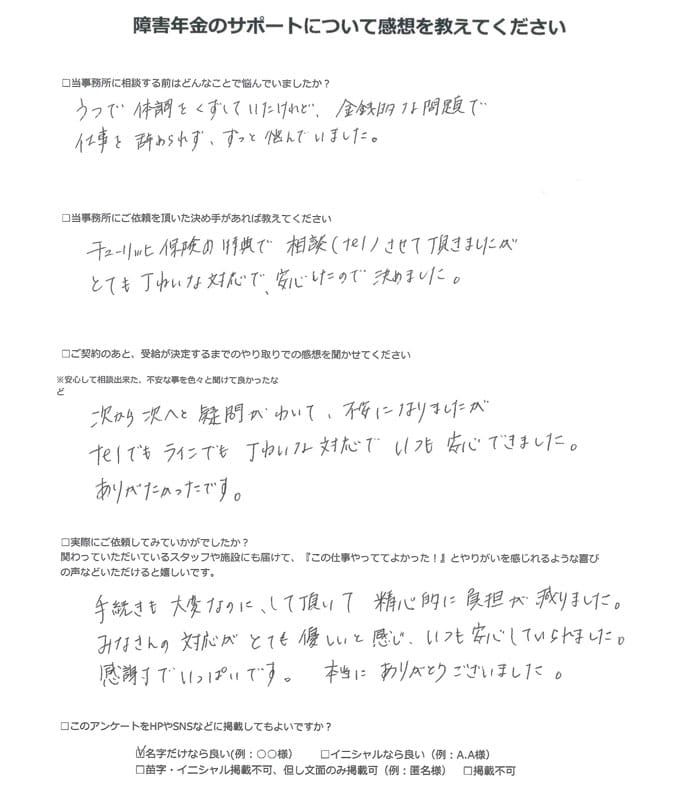 障害年金のサポートについて感想を教えてください
□当事務所に相談する前はどんなことで悩んでいましたか？
うつで体調をくずしていたけれど、金銭的な問題で
仕事を辞められず、ずっと悩んでいました。
□当事務所にご依頼を頂いた決め手があれば教えてください
チューリッヒ保険の特典で相談(tel)させて頂きましたが
とても丁ねいな対応で、安心したので決めました。
□ご契約のあと、受給が決定するまでのやり取りでの感想を聞かせてください
※安心して相談出来た、不安な事を色々と聞けて良かったな
ど
次から次へと疑問がわいて、不安になりましたが
telでもラインでも丁ねいな対応でいつも安心できました。
ありがたかったです。
□実際にご依頼してみていかがでしたか？
関わっていただいているスタッフや施設にも届けて、『この仕事やっててよかった！』とやりがいを感じれるような喜び
の声などいただけると嬉しいです。
手続きも大変なのに、して頂いて精心的に負担が減りました。
みなさんの対応がとても優しいと感じ、いつも安心していられました。
感謝でいっぱいです。 本当にありがとうございました。
□このアンケートをHPやSNSなどに掲載してもよいですか？
☑名字だけなら良い(例：○○様） □イニシャルなら良い（例：A.A様）
□苗字・イニシャル掲載不可、但し文面のみ掲載可（例：匿名様） □掲載不可